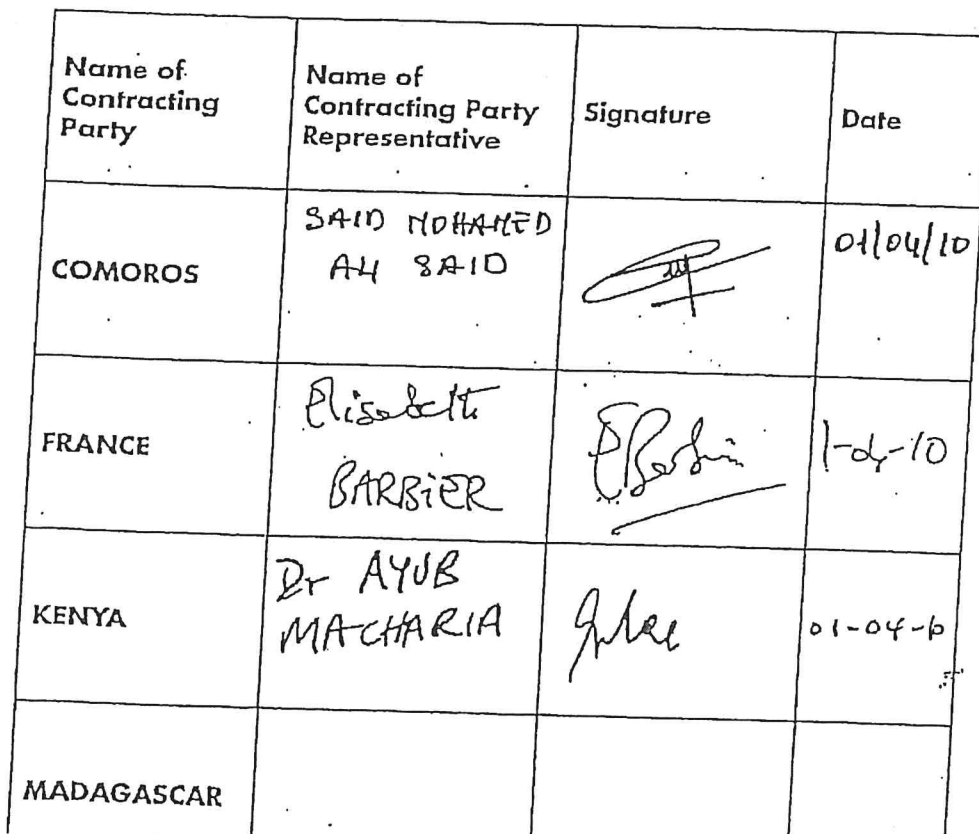 Name of
Contracting
Party
Name of
Contracting Party
Representative
Signature
Date
COMOROS
SAID MOHAMED
ALI SAID
01/04/10
FRANCE
Elisabeth
BARBiER
EBarbier
1-04-10
KENYA
Dr AYUB
MACHARIA
01-04-10
MADAGASCAR